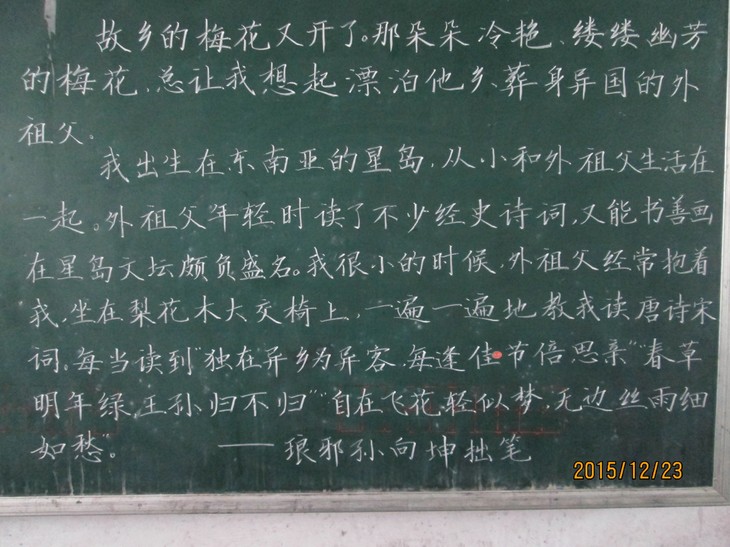 故乡的梅花又开了。那朵朵冷艳、缕缕幽芳
的梅花,总让我想起漂泊他乡、葬身异国的外
祖父。
我出生在东南亚的星岛,从小和外祖父生活在
一起。外祖父年轻时读了不少经史诗词,又能书善画
在星岛文坛颇负盛名。我很小的时候,外祖父经常抱着
我,坐在梨花木大交椅上,一遍一遍地教我读唐诗宋
词。每当读到“独在异乡为异客,每逢佳节倍思亲”“春草
明年绿,王孙归不归”“自在飞花轻似梦,无边丝雨细
如愁”。 ——琅邪孙向坤拙笔
2015/12/23